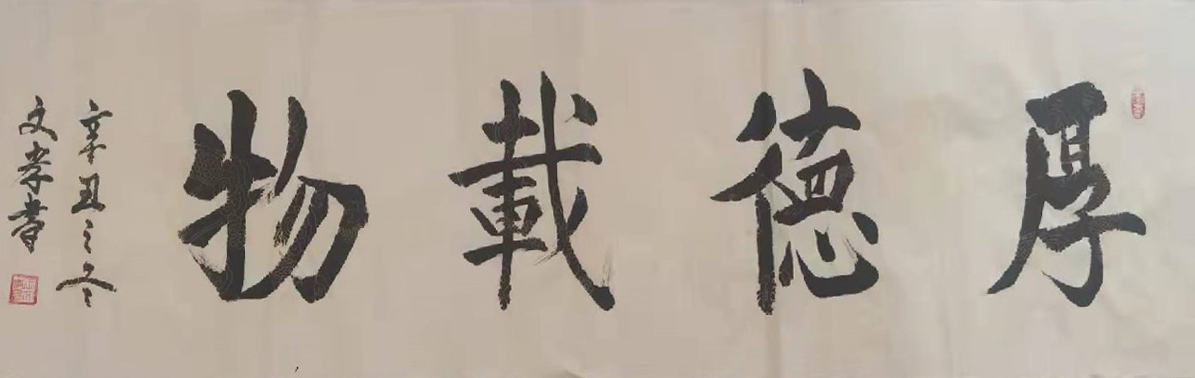 厚德載物
辛丑之冬
文孝書